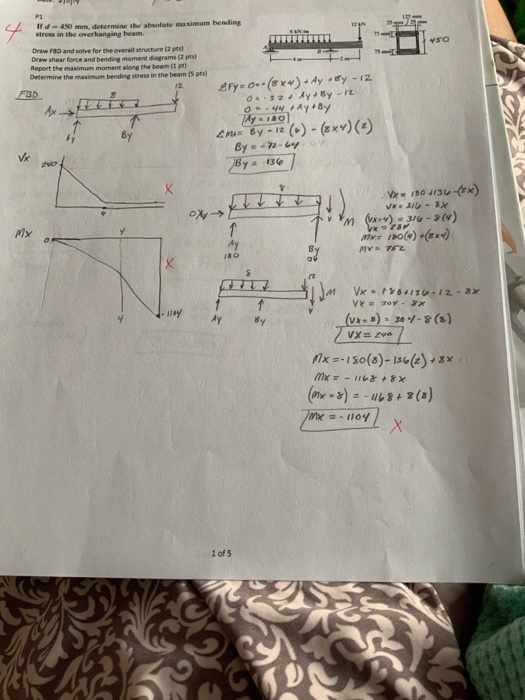 P1
If d = 450 mm, determine the absolute maximum bending
stress in the overhanging beam.
4
Draw FBD and solve for the overall structure (2 pts)
Draw shear force and bending moment diagrams (2 pts)
Report the maximum moment along the beam (1 pt)
Determine the maximum bending stress in the beam (5 pts)
12 kN
8 kN/m
125 mm
25 mm
25 mm
75 mm
75 mm
450
4 m
2 m
FBD
8
12
Ax
Ay
By
ΣFy = 0 = -(8x4) + Ay + By - 12
0 = -32 + Ay + By - 12
0 = -44 + Ay + By
Ay = 180
By - 12 (6) - (8x4)(2)
By = -72-64
By = 136
Vx
240
X
Mx
0
4
4
-1104
X
8
M
V
Ay
180
By
136
Vx = 180 + 136 - (8x)
Vx = 316 - 8x
(Vx=4) = 316 - 8(4)
Vx = 284
Mx = 180(4) + (8x4)
Mx = 752
8
12
M
V
Ay
By
Vx = 180 + 136 - 12 - 8x
Vx = 304 - 8x
(Vx=8) = 304 - 8(8)
Vx = 240
Mx = -180(8) - 136(2) + 8x
Mx = -1168 + 8x
(Mx=8) = -1168 + 8(8)
Mx = -1104
X
1 of 5